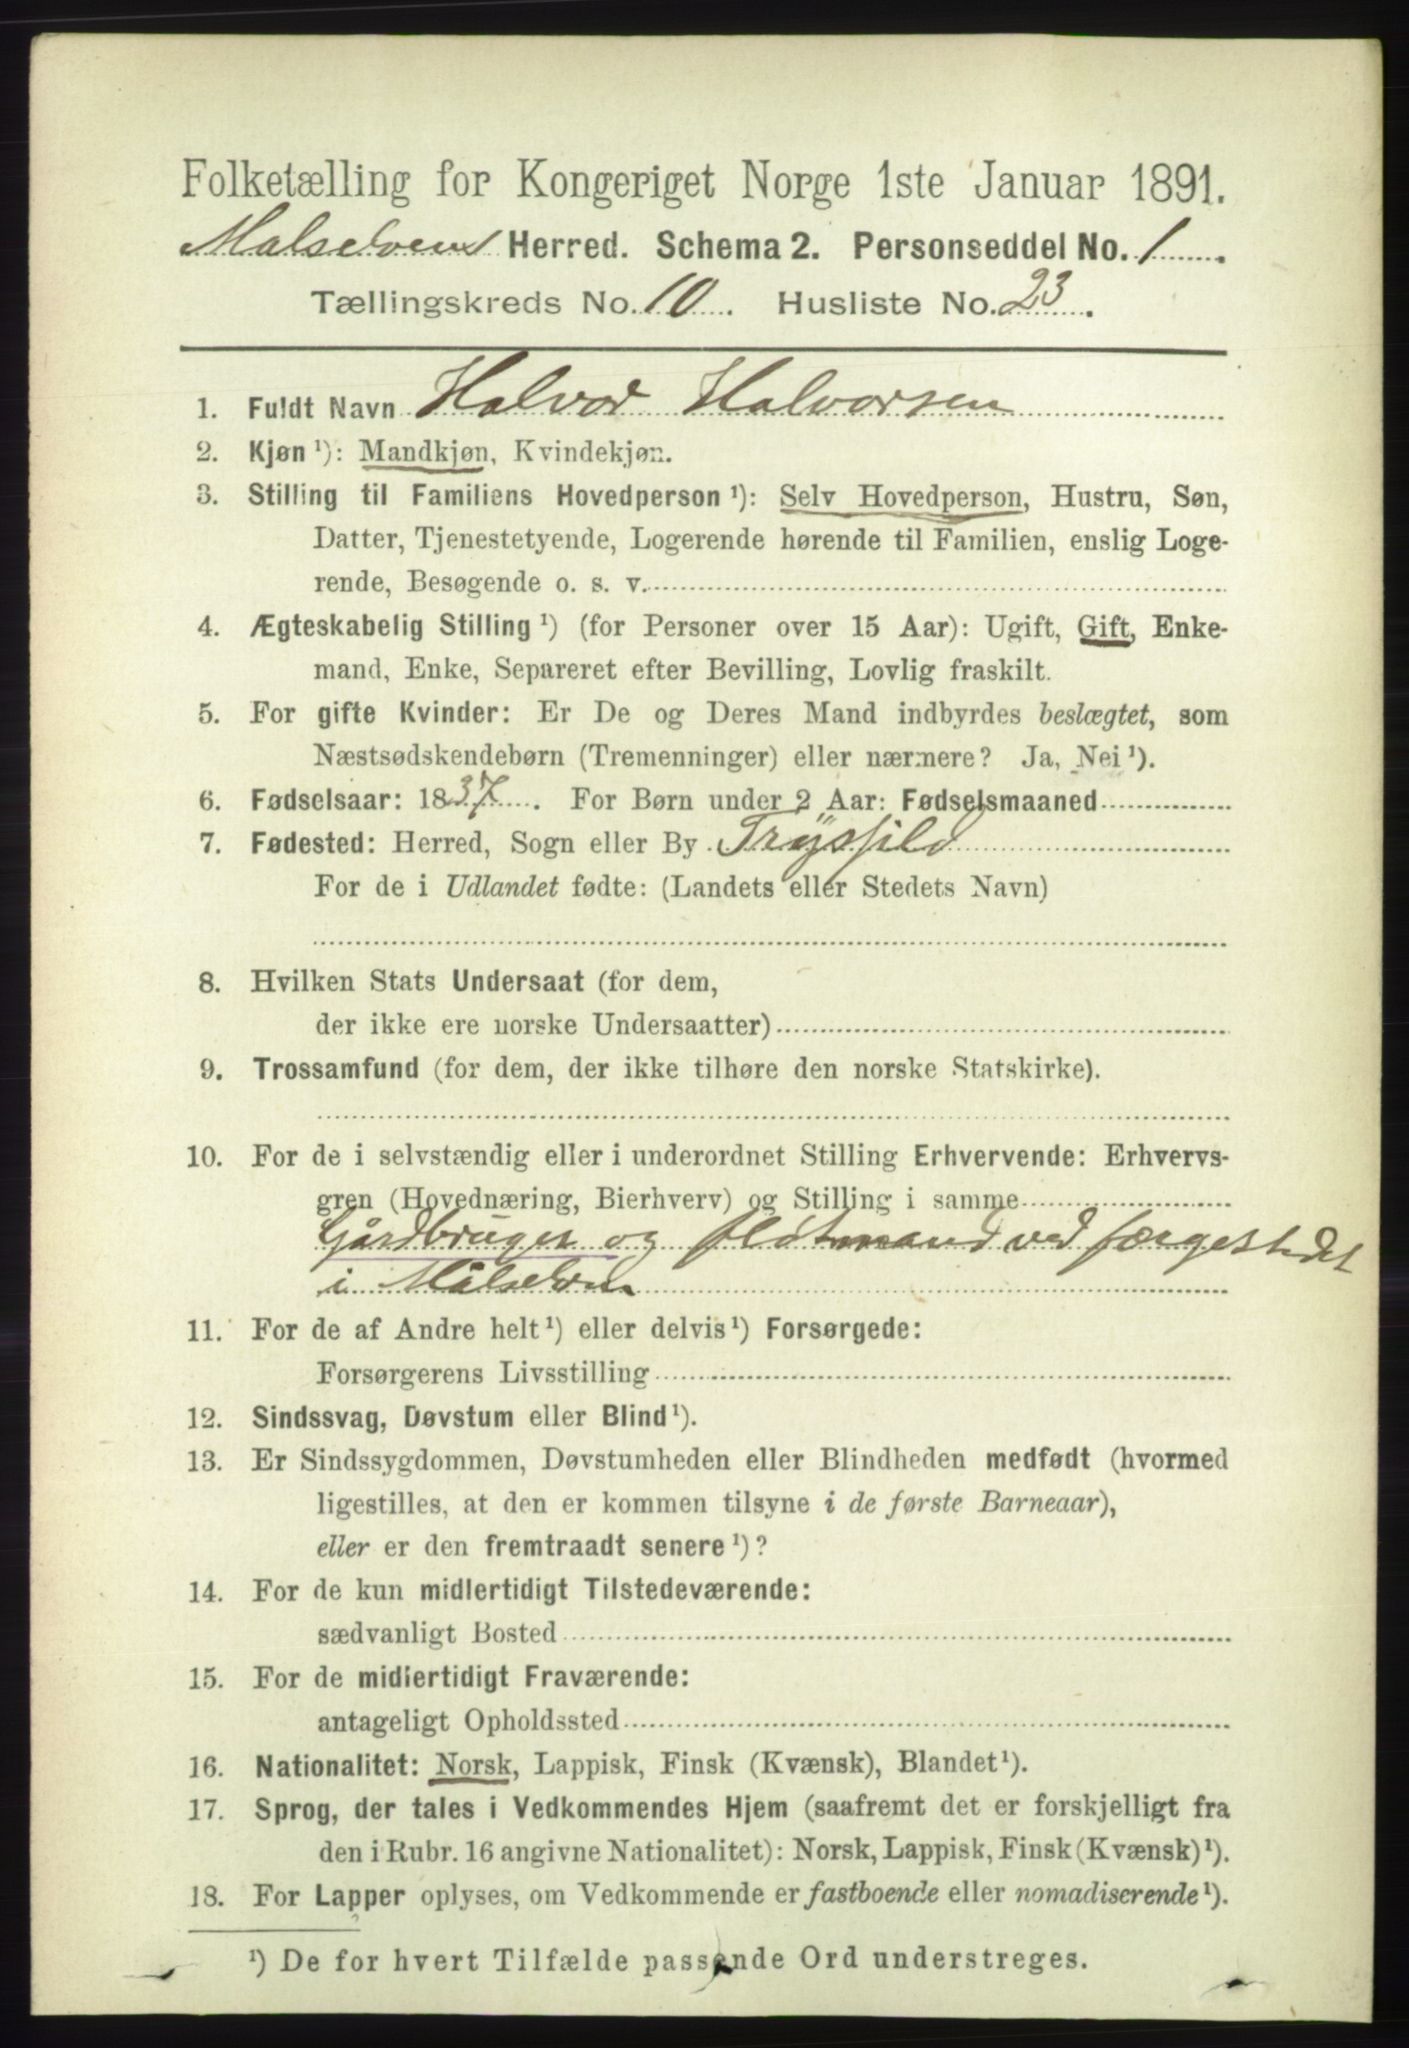 Folketælling for Kongeriget Norge 1ste Januar 1891.
Malselvens Herred. Schema 2. Personseddel No. 1
Tællingskreds No. 10. Husliste No. 23.
1. Fuldt Navn Halvor Halvorsen
2. Kjøn ¹): Mandkjøn, Kvindekjøn.
3. Stilling til Familiens Hovedperson ¹): Selv Hovedperson, Hustru, Søn,
Datter, Tjenestetyende, Logerende hørende til Familien, enslig Loge-
rende, Besøgende o. s. v.
4. Ægteskabelig Stilling ¹) (for Personer over 15 Aar): Ugift, Gift, Enke-
mand, Enke, Separeret efter Bevilling, Lovlig fraskilt.
5. For gifte Kvinder: Er De og Deres Mand indbyrdes beslægtet, som
Næstsødskendebørn (Tremenninger) eller nærmere? Ja, Nei ¹).
6. Fødselsaar: 1837. For Børn under 2 Aar: Fødselsmaaned
7. Fødested: Herred, Sogn eller By Trysfild
For de i Udlandet fødte: (Landets eller Stedets Navn)
8. Hvilken Stats Undersaat (for dem,
der ikke ere norske Undersaatter)
9. Trossamfund (for dem, der ikke tilhøre den norske Statskirke).
10. For de i selvstændig eller i underordnet Stilling Erhvervende: Erhvervs-
gren (Hovednæring, Bierhverv) og Stilling i samme
Gårdbruger og flötmand ved færgestedet
i Målselven
11. For de af Andre helt ¹) eller delvis ¹) Forsørgede:
Forsørgerens Livsstilling
12. Sindssvag, Døvstum eller Blind ¹).
13. Er Sindssygdommen, Døvstumheden eller Blindheden medfødt (hvormed
ligestilles, at den er kommen tilsyne i de første Barneaar),
eller er den fremtraadt senere ¹)?
14. For de kun midlertidigt Tilstedeværende:
sædvanligt Bosted
15. For de midlertidigt Fraværende:
antageligt Opholdssted
16. Nationalitet: Norsk, Lappisk, Finsk (Kvænsk), Blandet ¹).
17. Sprog, der tales i Vedkommendes Hjem (saafremt det er forskjelligt fra
den i Rubr. 16 angivne Nationalitet): Norsk, Lappisk, Finsk (Kvænsk) ¹).
18. For Lapper oplyses, om Vedkommende er fastboende eller nomadiserende ¹).
¹) De for hvert Tilfælde passende Ord understreges.